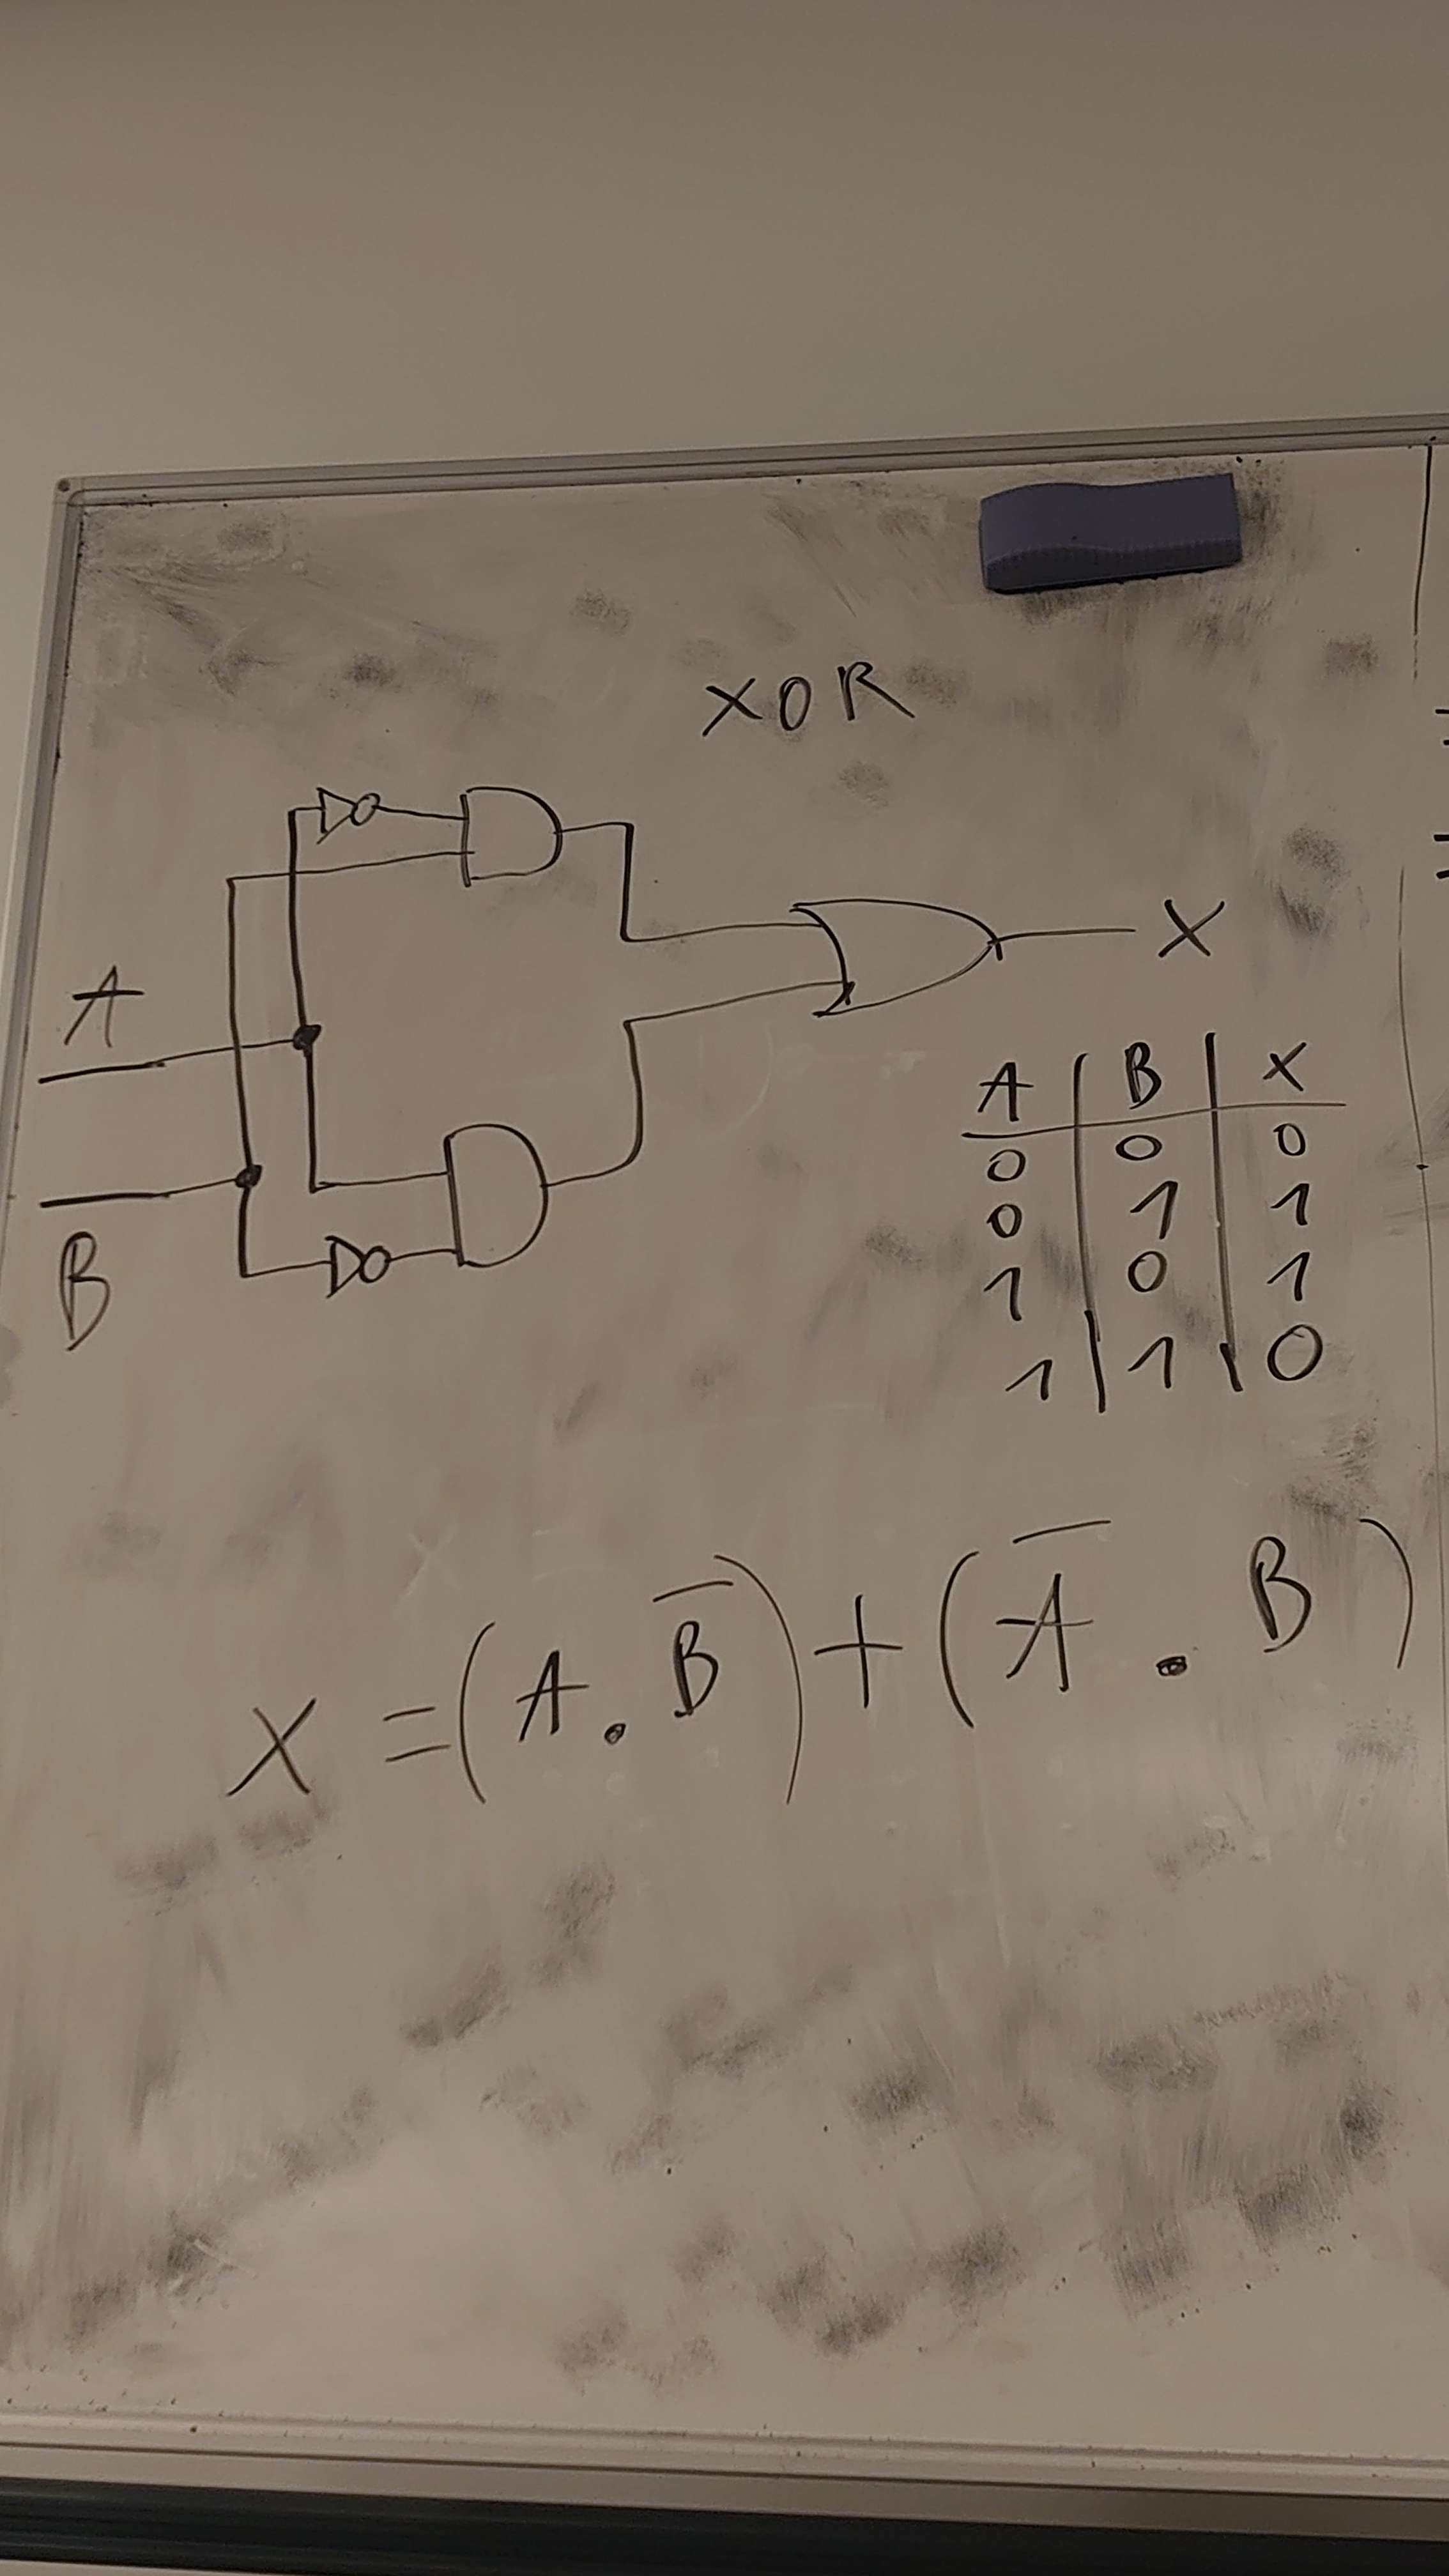 XOR
A
B
X
A | B | X
0 | 0 | 0
0 | 1 | 1
1 | 0 | 1
1 | 1 | 0
X = (A . B̅) + (A̅ . B)